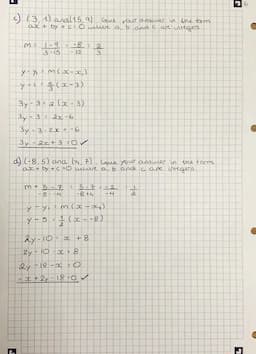 c) (3, 1) and (15, 9) Leave your answer in the form
ax + by + c = 0 where a, b and c are integers.
m = 1-9 / 3-15 = -8 / -12 = 2 / 3
y - y₁ = m(x - x₁)
y - 1 = 2/3 (x - 3)
3y - 3 = 2(x - 3)
3y - 3 = 2x - 6
3y - 3 - 2x = -6
3y - 2x + 3 = 0 ✓
d) (-8, 5) and (4, 7). Leave your answer in the form
ax + by + c = 0 where a, b and c are integers.
m = 5-7 / -8--4 = 5-7 / -8+4 = -2 / -4 = 1 / 2
y - y₁ = m(x - x₁)
y - 5 = 1/2 (x - -8)
2y - 10 = x + 8
2y - 10 - x = 8
2y - 18 - x = 0
-x + 2y - 18 = 0 ✓